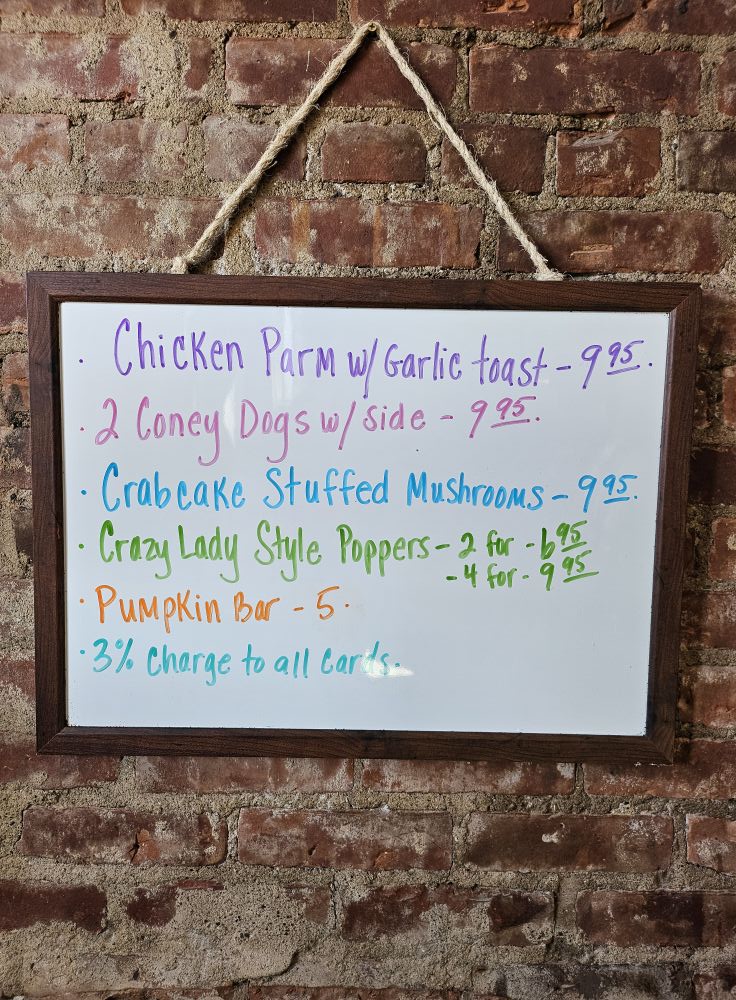 · Chicken Parm w/ Garlic toast - 9 95.
· 2 Coney Dogs w/ side - 9 95.
· Crabcake Stuffed Mushrooms - 9 95.
· Crazy Lady Style Poppers - 2 for - 6 95
- 4 for - 9 95
· Pumpkin Bar - 5.
· 3% Charge to all cards.